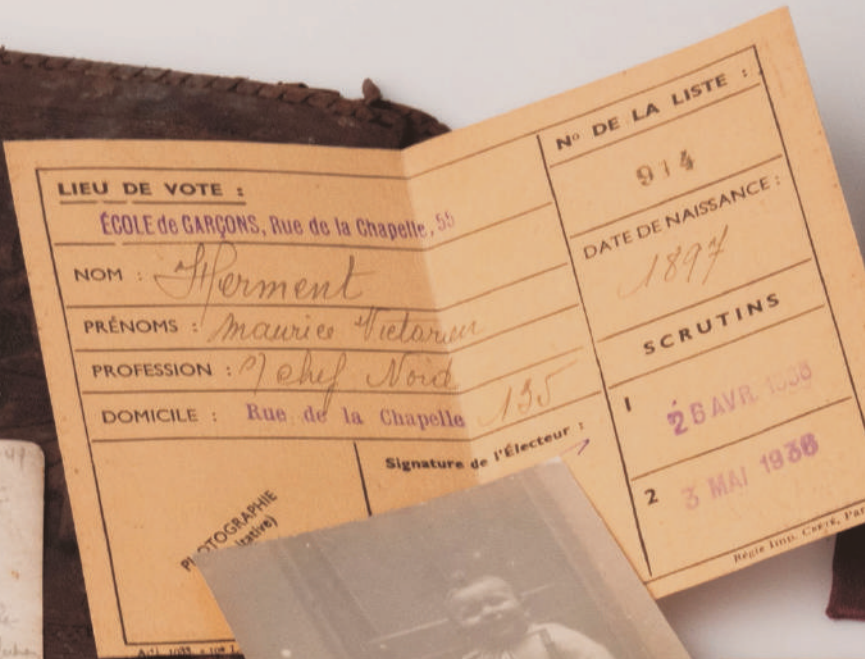 LIEU DE VOTE :
ÉCOLE de GARÇONS, Rue de la Chapelle, 55
NOM : Herment
PRÉNOMS : Maurice Victorien
PROFESSION : chef Nord
DOMICILE : Rue de la Chapelle 135
Signature de l'Électeur :
PHOTOGRAPHIE
No DE LA LISTE :
914
DATE DE NAISSANCE :
1897
SCRUTINS
1 26 AVR. 1936
2 3 MAI 1936
Régie Imp.